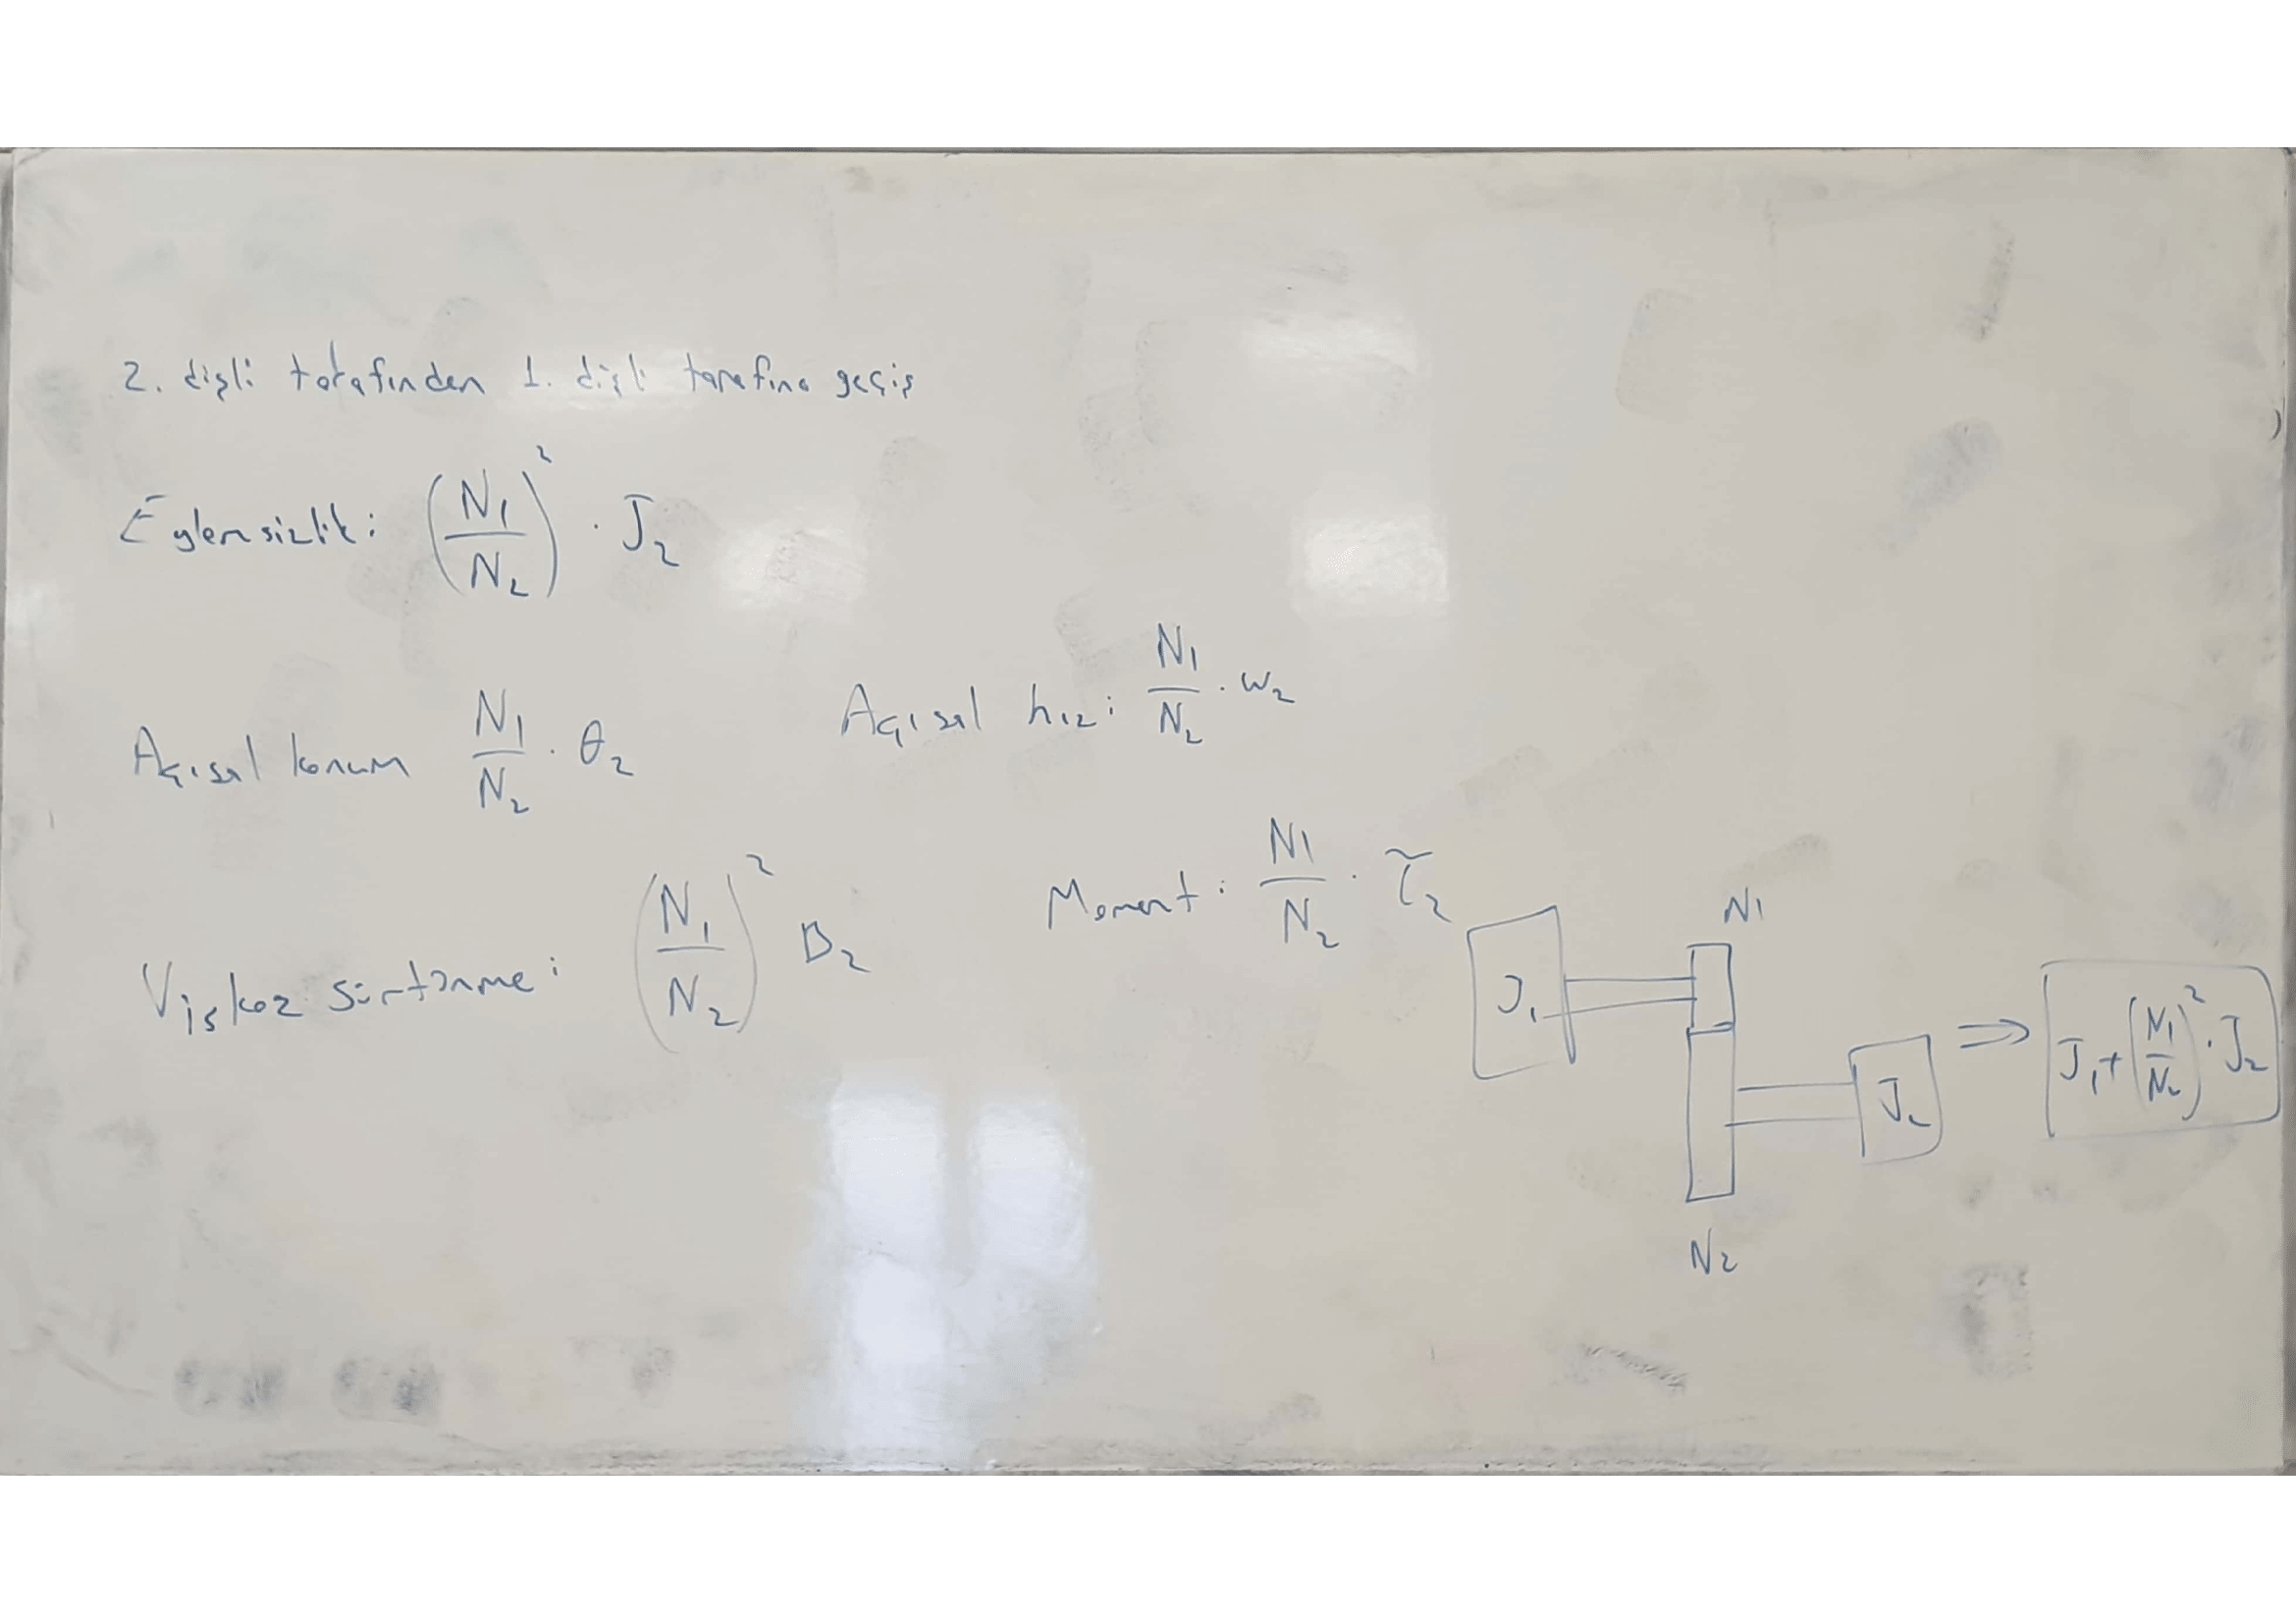 2. dişli tarafından 1. dişli tarafına geçiş
Eylemsizlik: (N1/N2)² · J2
Açısal konum N1/N2 · θ2
Açısal hız: N1/N2 · ω2
Viskoz sürtünme: (N1/N2)² B2
Moment: N1/N2 · T̃2
N1
J1
J2
⇒ J1 + (N1/N2)² · J2
N2